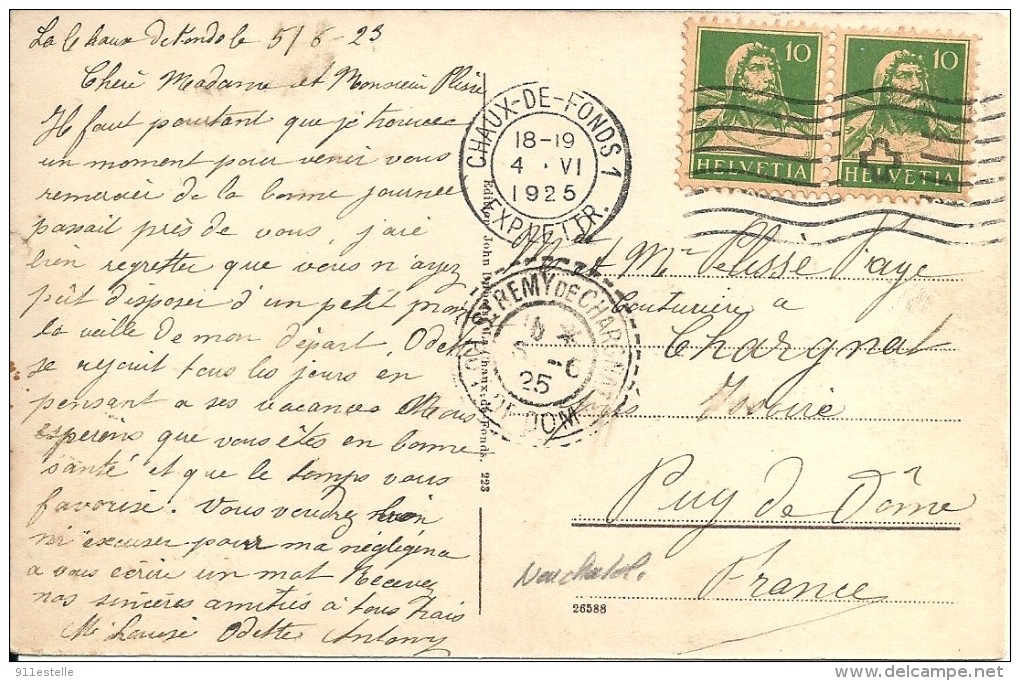 La Chaux de Fonds le 5/6-23
Cheré Madame et Monsieur Plissè
Il faut pourtant que je trouve
un moment pour venir vous
remercier de la bonne journee
passait près de vous, j'aie
bien regretter que vous n'ayez
pût disposer d'un petit mon
la veille de mon départ, Odette
se rejouit tous les jours en
pensant a ses vacances Nous
esperons que vous êtes en bonne
santé et que le temps vous
favorise. Vous voudrez bien
m'excuser pour ma négligena
a vous écrire un mot Recevez
nos sincères amitiés à tous trois
Me Louise Odette Antony
Editor John
Chaux-de-Fonds. 223
CHAUX-DE-FONDS 1
18-19
4 · VI
1925
EXP. LETTR.
10
HELVETIA
10
HELVETIA
ST REMY DE CHARGNAT
6 -6
25
PUY-DE-DOME
Mme et Mr Pelissè Page
Couturière a
Chargnat
près Issoire
Puy de Dôme
France
Neuchatel.
26588
911estelle
www.delcampe.net